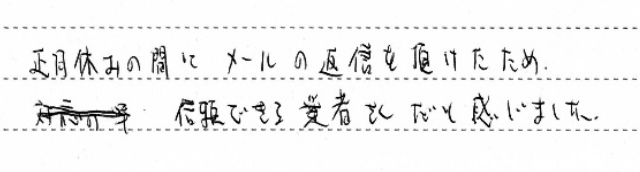 正月休みの間に メールの返信を頂けたため、
信頼できる業者さんだと感じました。